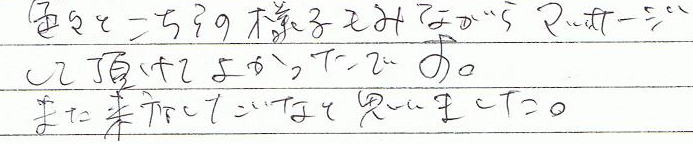 色々とこちらの様子もみながらマッサージ
して頂けてよかったです。
また来店したいなと思いました。